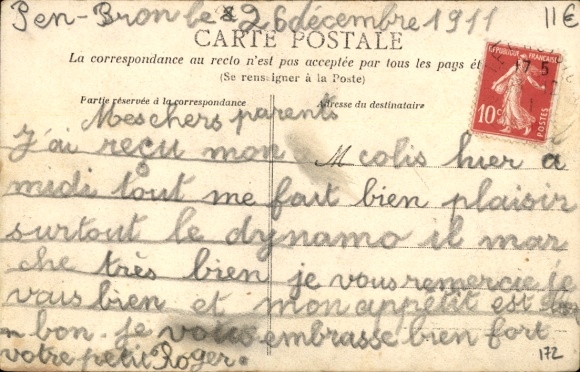 Pen-Bron le 26 décembre 1911
11€
CARTE POSTALE
La correspondance au recto n'est pas acceptée par tous les pays ét
(Se renseigner à la Poste)
RÉPUBLIQUE FRANÇAISE
10c
POSTES
Partie réservée à la correspondance
Adresse du destinataire
Mes chers parents
J'ai reçu mon colis hier à
midi tout me fait bien plaisir
surtout le dynamo il mar
che très bien je vous remercie je
vais bien et mon appétit est
bon. je vous embrasse bien fort
votre petit Roger.
172